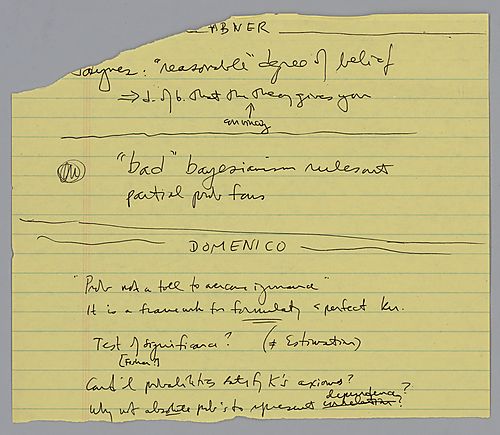 ABNER
Jaynes: "reasonable" degree of belief
⇒ d. of b. that the theory gives you
"bad" bayesianism rules out
partial prob fans
DOMENICO
"Prob not a tool to overcome ignorance"
It is a framework for formulating & perfect kn.
Test of significance? (≠ Estimation)
[Fisher?]
Cond'l probabilities satisfy K's axioms?
dependency?
Why not absolute prob's to represent correlation?